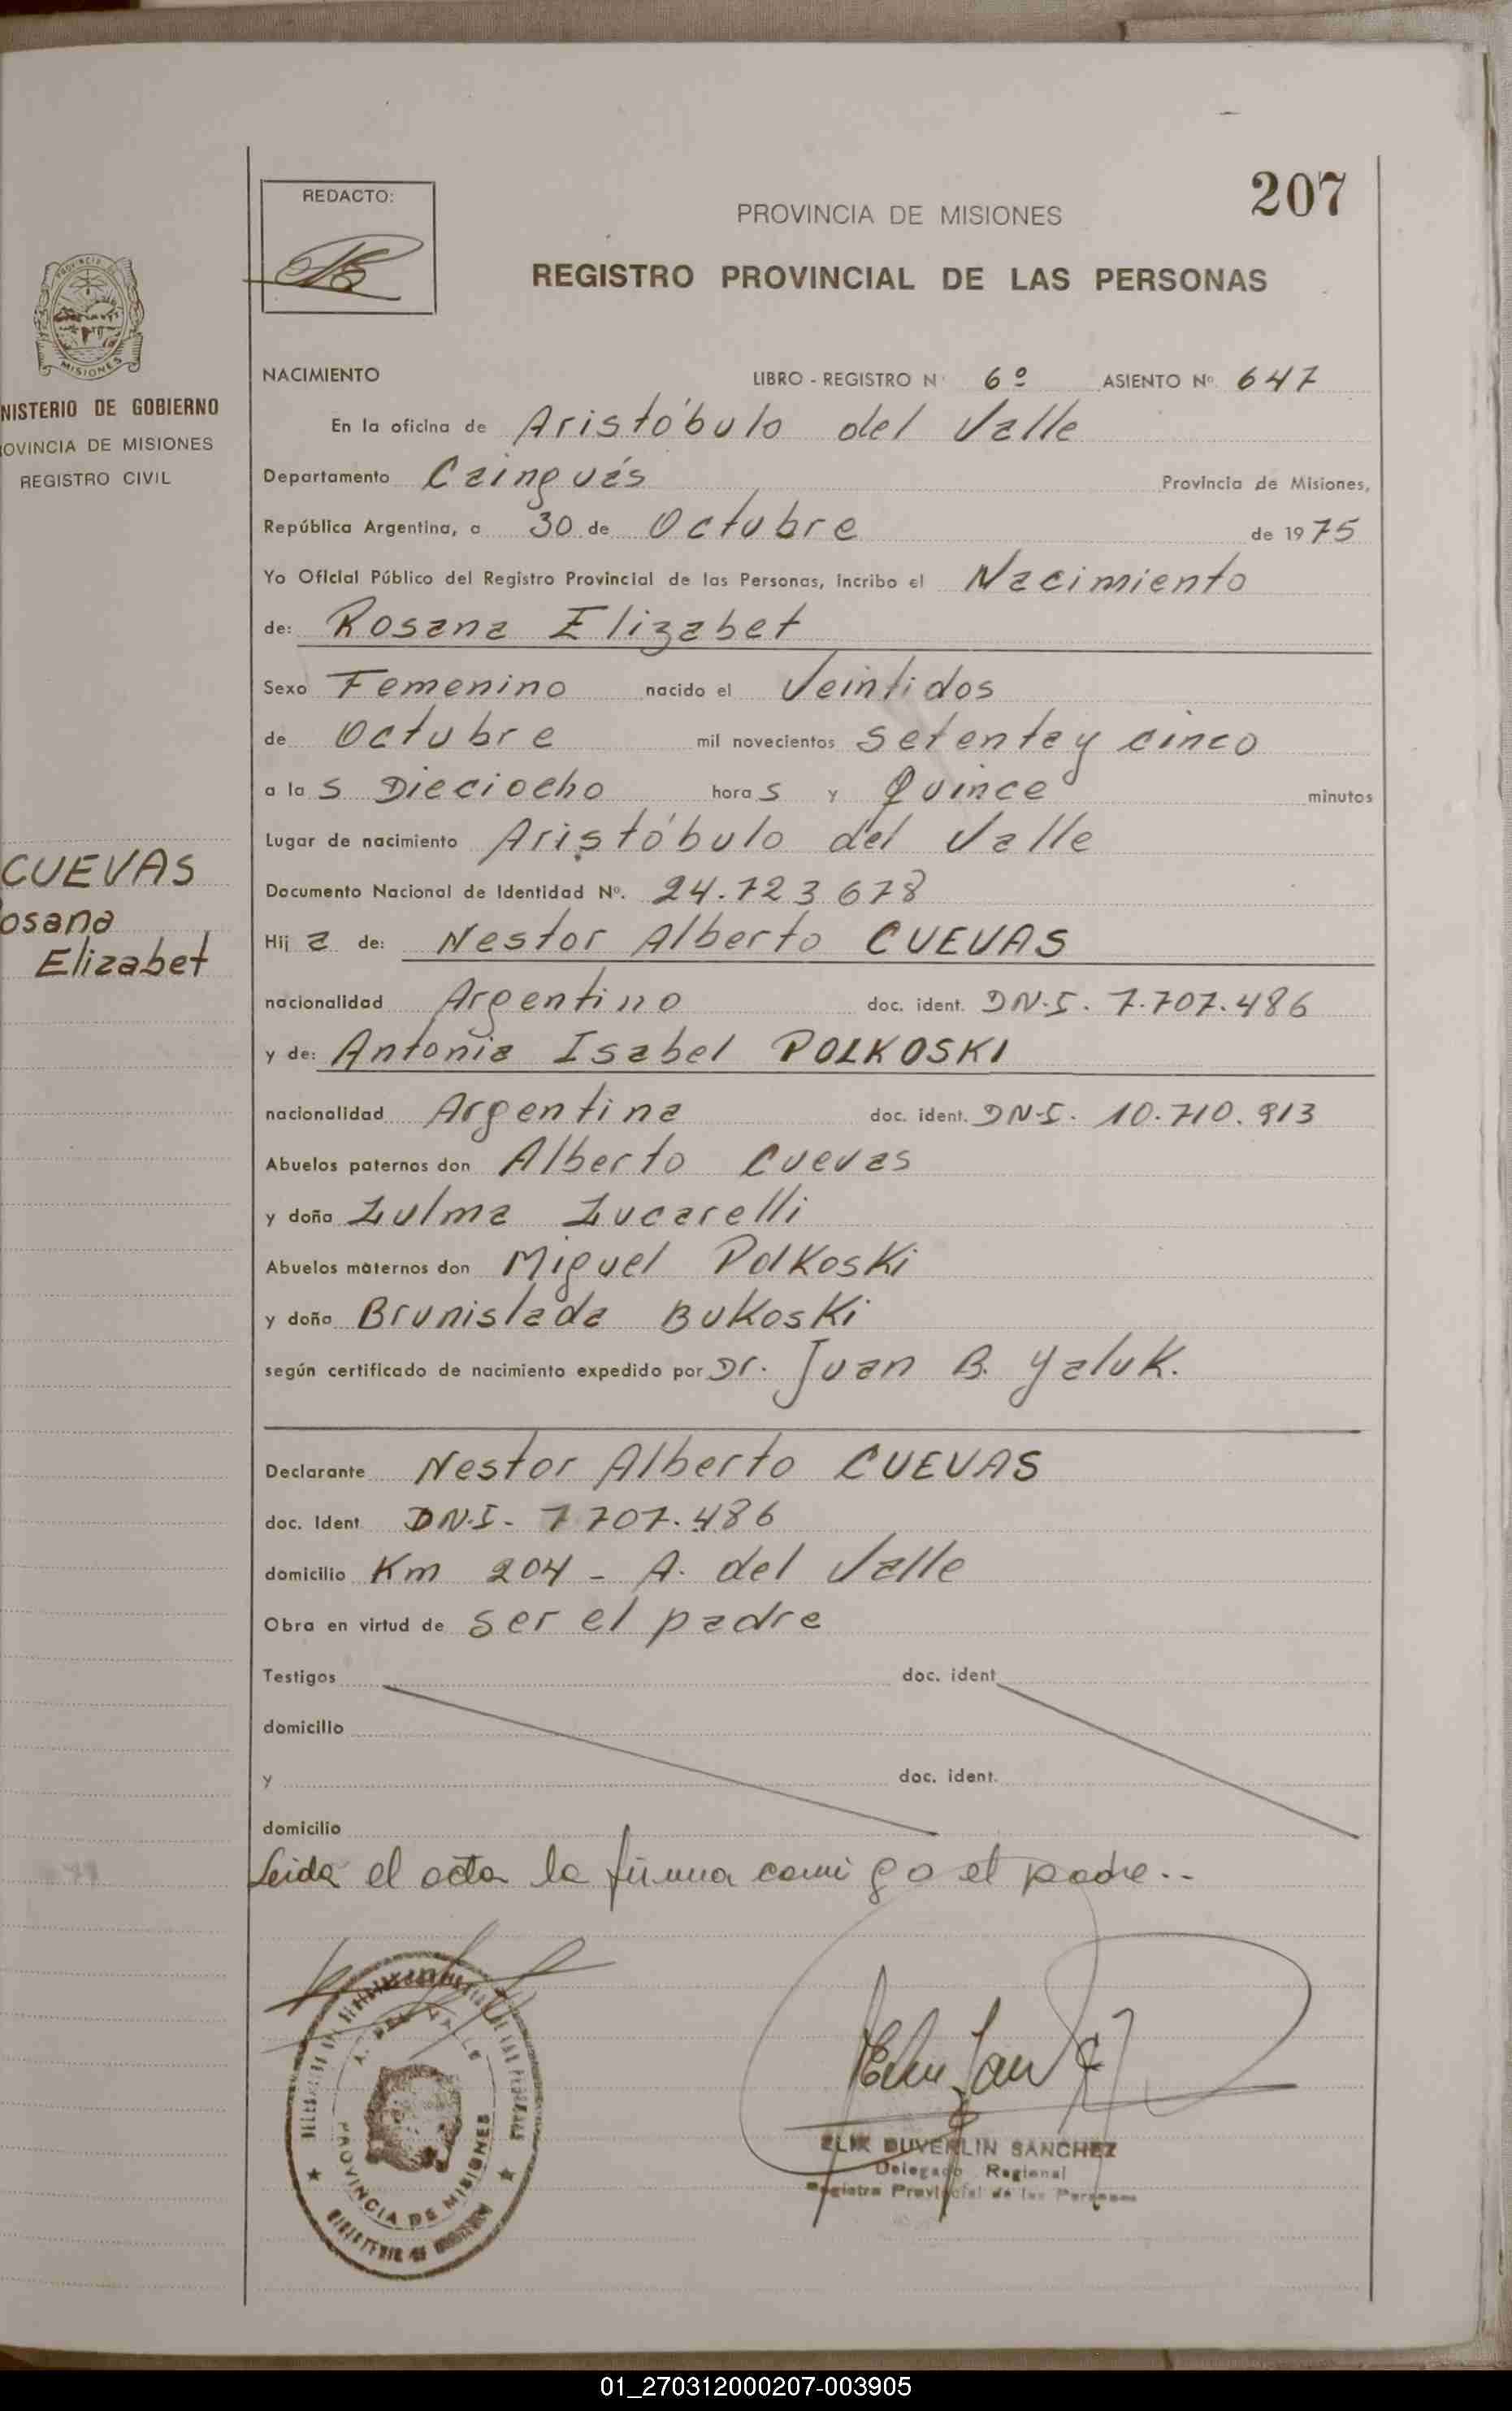 207
REDACTO:
PROVINCIA DE MISIONES
REGISTRO PROVINCIAL DE LAS PERSONAS
PROVINCIA DE
MISIONES
NISTERIO DE GOBIERNO
OVINCIA DE MISIONES
REGISTRO CIVIL
NACIMIENTO LIBRO - REGISTRO N° 6º ASIENTO Nº 647
En la oficina de Aristóbulo del Valle
Departamento Cainguás Provincia de Misiones,
República Argentina, a 30 de Octubre de 1975
Yo Oficial Público del Registro Provincial de las Personas, incribo el Nacimiento
de: Rosana Elizabet
Sexo Femenino nacido el Veintidos
de Octubre mil novecientos setenta y cinco
a la s Dieciocho hora s y Quince minutos
Lugar de nacimiento Aristóbulo del Valle
CUEVAS
osana
Elizabet
Documento Nacional de Identidad Nº. 24.723.678
Hij a de: Nestor Alberto CUEVAS
nacionalidad Argentino doc. ident. DN.I. 7.707.486
y de: Antonia Isabel POLKOSKI
nacionalidad Argentina doc. ident. DN.I. 10.710.913
Abuelos paternos don Alberto Cuevas
y doña Zulma Lucarelli
Abuelos maternos don Miguel Polkoski
y doña Brunislada Bukoski
según certificado de nacimiento expedido por Dr. Juan B. Yaluk.
Declarante Nestor Alberto CUEVAS
doc. Ident DN.I- 7.707.486
domicilio Km 204 - A. del Valle
Obra en virtud de ser el padre
Testigos doc. ident
domicilio
y doc. ident.
domicilio
Leida el acta la firma comigo el padre..
A. DEL VALLE
PROVINCIA DE MISIONES
DUVERLIN SANCHEZ
Delegado Regional
Registro Provincial de las Personas
01_270312000207-003905